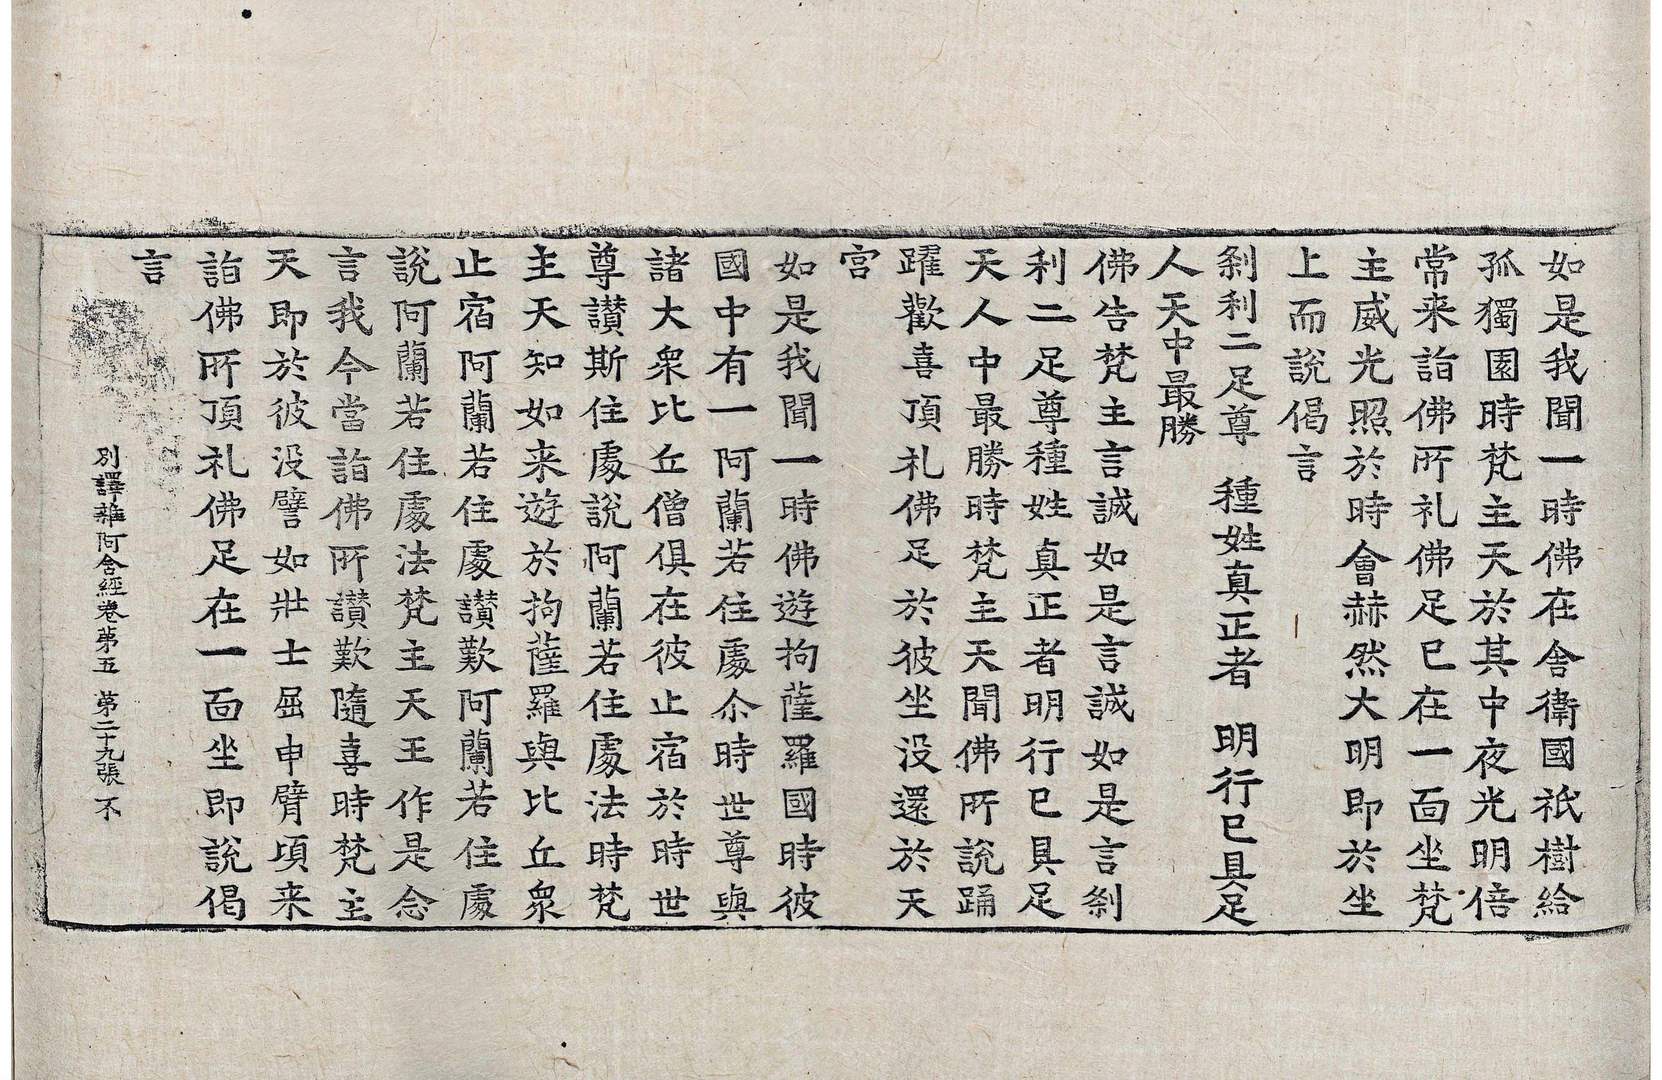 如是我聞一時佛在舍衛國祇樹給
孤獨園時梵主天於其中夜光明倍
常来詣佛所礼佛足已在一面坐梵
主威光照於時會赫然大明即於坐
上而說偈言
刹利二足尊　種姓真正者　明行已具足
人天中最勝
佛告梵主言誠如是言誠如是言刹
利二足尊種姓真正者明行已具足
天人中最勝時梵主天聞佛所說踊
躍歡喜頂礼佛足於彼坐没還於天
宮
如是我聞一時佛遊拘薩羅國時彼
國中有一阿蘭若住處尒時世尊與
諸大衆比丘僧俱在彼止宿於時世
尊讃斯住處說阿蘭若住處法時梵
主天知如来遊於拘薩羅與比丘衆
止宿阿蘭若住處讃歎阿蘭若住處
說阿蘭若住處法梵主天王作是念
言我今當詣佛所讃歎隨喜時梵主
天即於彼没譬如壯士屈申臂頃来
詣佛所頂礼佛足在一面坐即說偈
言
別譯雜阿含經卷第五　第二十九張　不